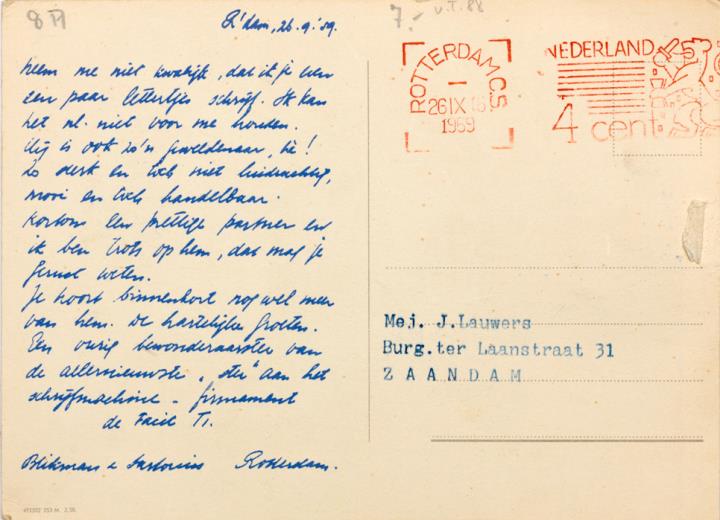 8 H
7.-
v.T. 88
R'dam, 26.9.'59.
Neem me niet kwalijk, dat ik je even
een paar lettertjes schrijf. Ik kan
het nl. niet voor me houden.
Hij is ook zo'n geweldenaar, hè!
Zo sterk en toch niet luidruchtig,
mooi en toch handelbaar.
Kortom een prettige partner en
ik ben trots op hem, dat mag je
gerust weten.
Je hoort binnenkort nog wel meer
van hem. De hartelijke groeten.
Een vurig bewonderaarster van
de allernieuwste "ster" aan het
schrijfmachine - firmament
de Facit T1.
Blikman & Sartorius Rotterdam.
ROTTERDAM C.S
26 IX 16
1959
NEDERLAND
4 cent
Mej. J.Lauwers
Burg.ter Laanstraat 31
ZAANDAM